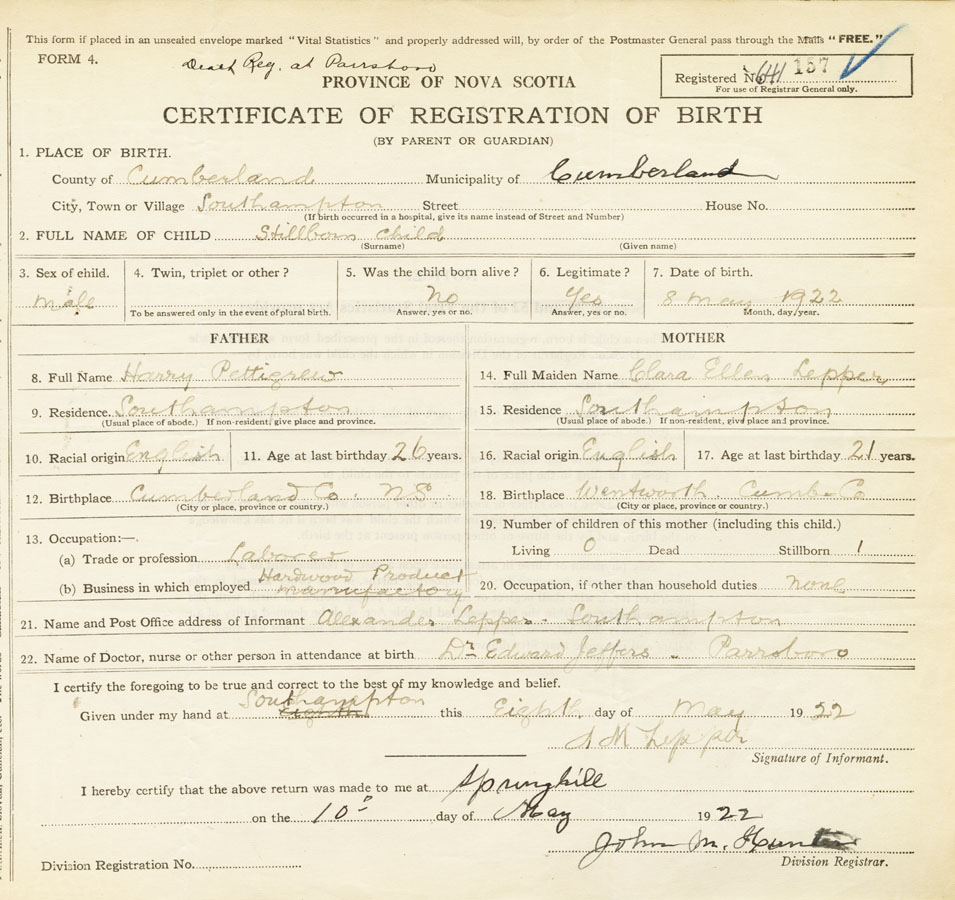 This form if placed in an unsealed envelope marked "Vital Statistics" and properly addressed will, by order of the Postmaster General pass through the Mails "FREE."
FORM 4.
Death Reg. at Parrsboro
PROVINCE OF NOVA SCOTIA
Registered No. 157
For use of Registrar General only.
CERTIFICATE OF REGISTRATION OF BIRTH
(BY PARENT OR GUARDIAN)
1. PLACE OF BIRTH.
County of Cumberland Municipality of Cumberland
City, Town or Village Southampton Street House No.
(If birth occurred in a hospital, give its name instead of Street and Number)
2. FULL NAME OF CHILD Stillborn child
(Surname) (Given name)
3. Sex of child. 4. Twin, triplet or other? 5. Was the child born alive? 6. Legitimate? 7. Date of birth.
male No Yes 8 May 1922
To be answered only in the event of plural birth. Answer, yes or no. Answer, yes or no. Month, day, year.
FATHER MOTHER
8. Full Name Harry Pettigrew 14. Full Maiden Name Clara Ellen Lepper
9. Residence. Southampton 15. Residence Southampton
(Usual place of abode.) If non-resident, give place and province. (Usual place of abode.) If non-resident, give place and province.
10. Racial origin English 11. Age at last birthday 26 years. 16. Racial origin English 17. Age at last birthday 21 years.
12. Birthplace Cumberland Co. N.S. 18. Birthplace Wentworth. Cumb. Co
(City or place, province or country.) (City or place, province or country.)
13. Occupation:—. 19. Number of children of this mother (including this child.)
(a) Trade or profession Laborer Living 0 Dead Stillborn 1
(b) Business in which employed Hardwood Product manufactory 20. Occupation, if other than household duties none
21. Name and Post Office address of Informant Alexander Lepper. Southampton
22. Name of Doctor, nurse or other person in attendance at birth Dr Edward Jeffers - Parrsboro
I certify the foregoing to be true and correct to the best of my knowledge and belief.
Southampton
Given under my hand at Eighth this Eighth day of May 1922
A M Lepper
Signature of Informant.
I hereby certify that the above return was made to me at Springhill
on the 10th day of May 1922
John M. Hunter
Division Registration No. Division Registrar.